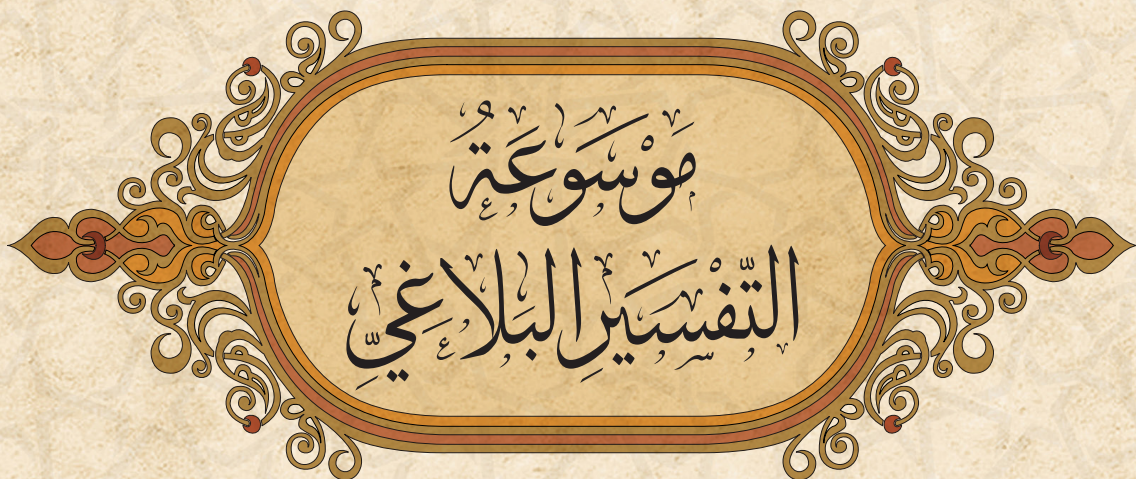 مَوْسُوعَةُ
التَّفْسِيرِ البَلَاغِيِّ